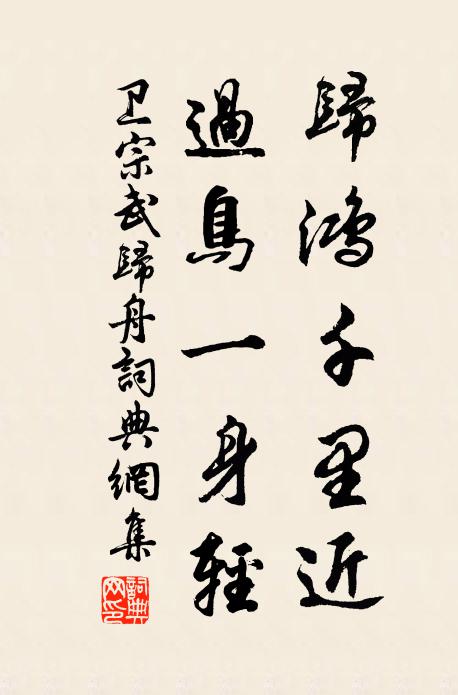 歸鴻千里近
過鳥一身輕
卫宗武歸舟詞典網集
詞典網印